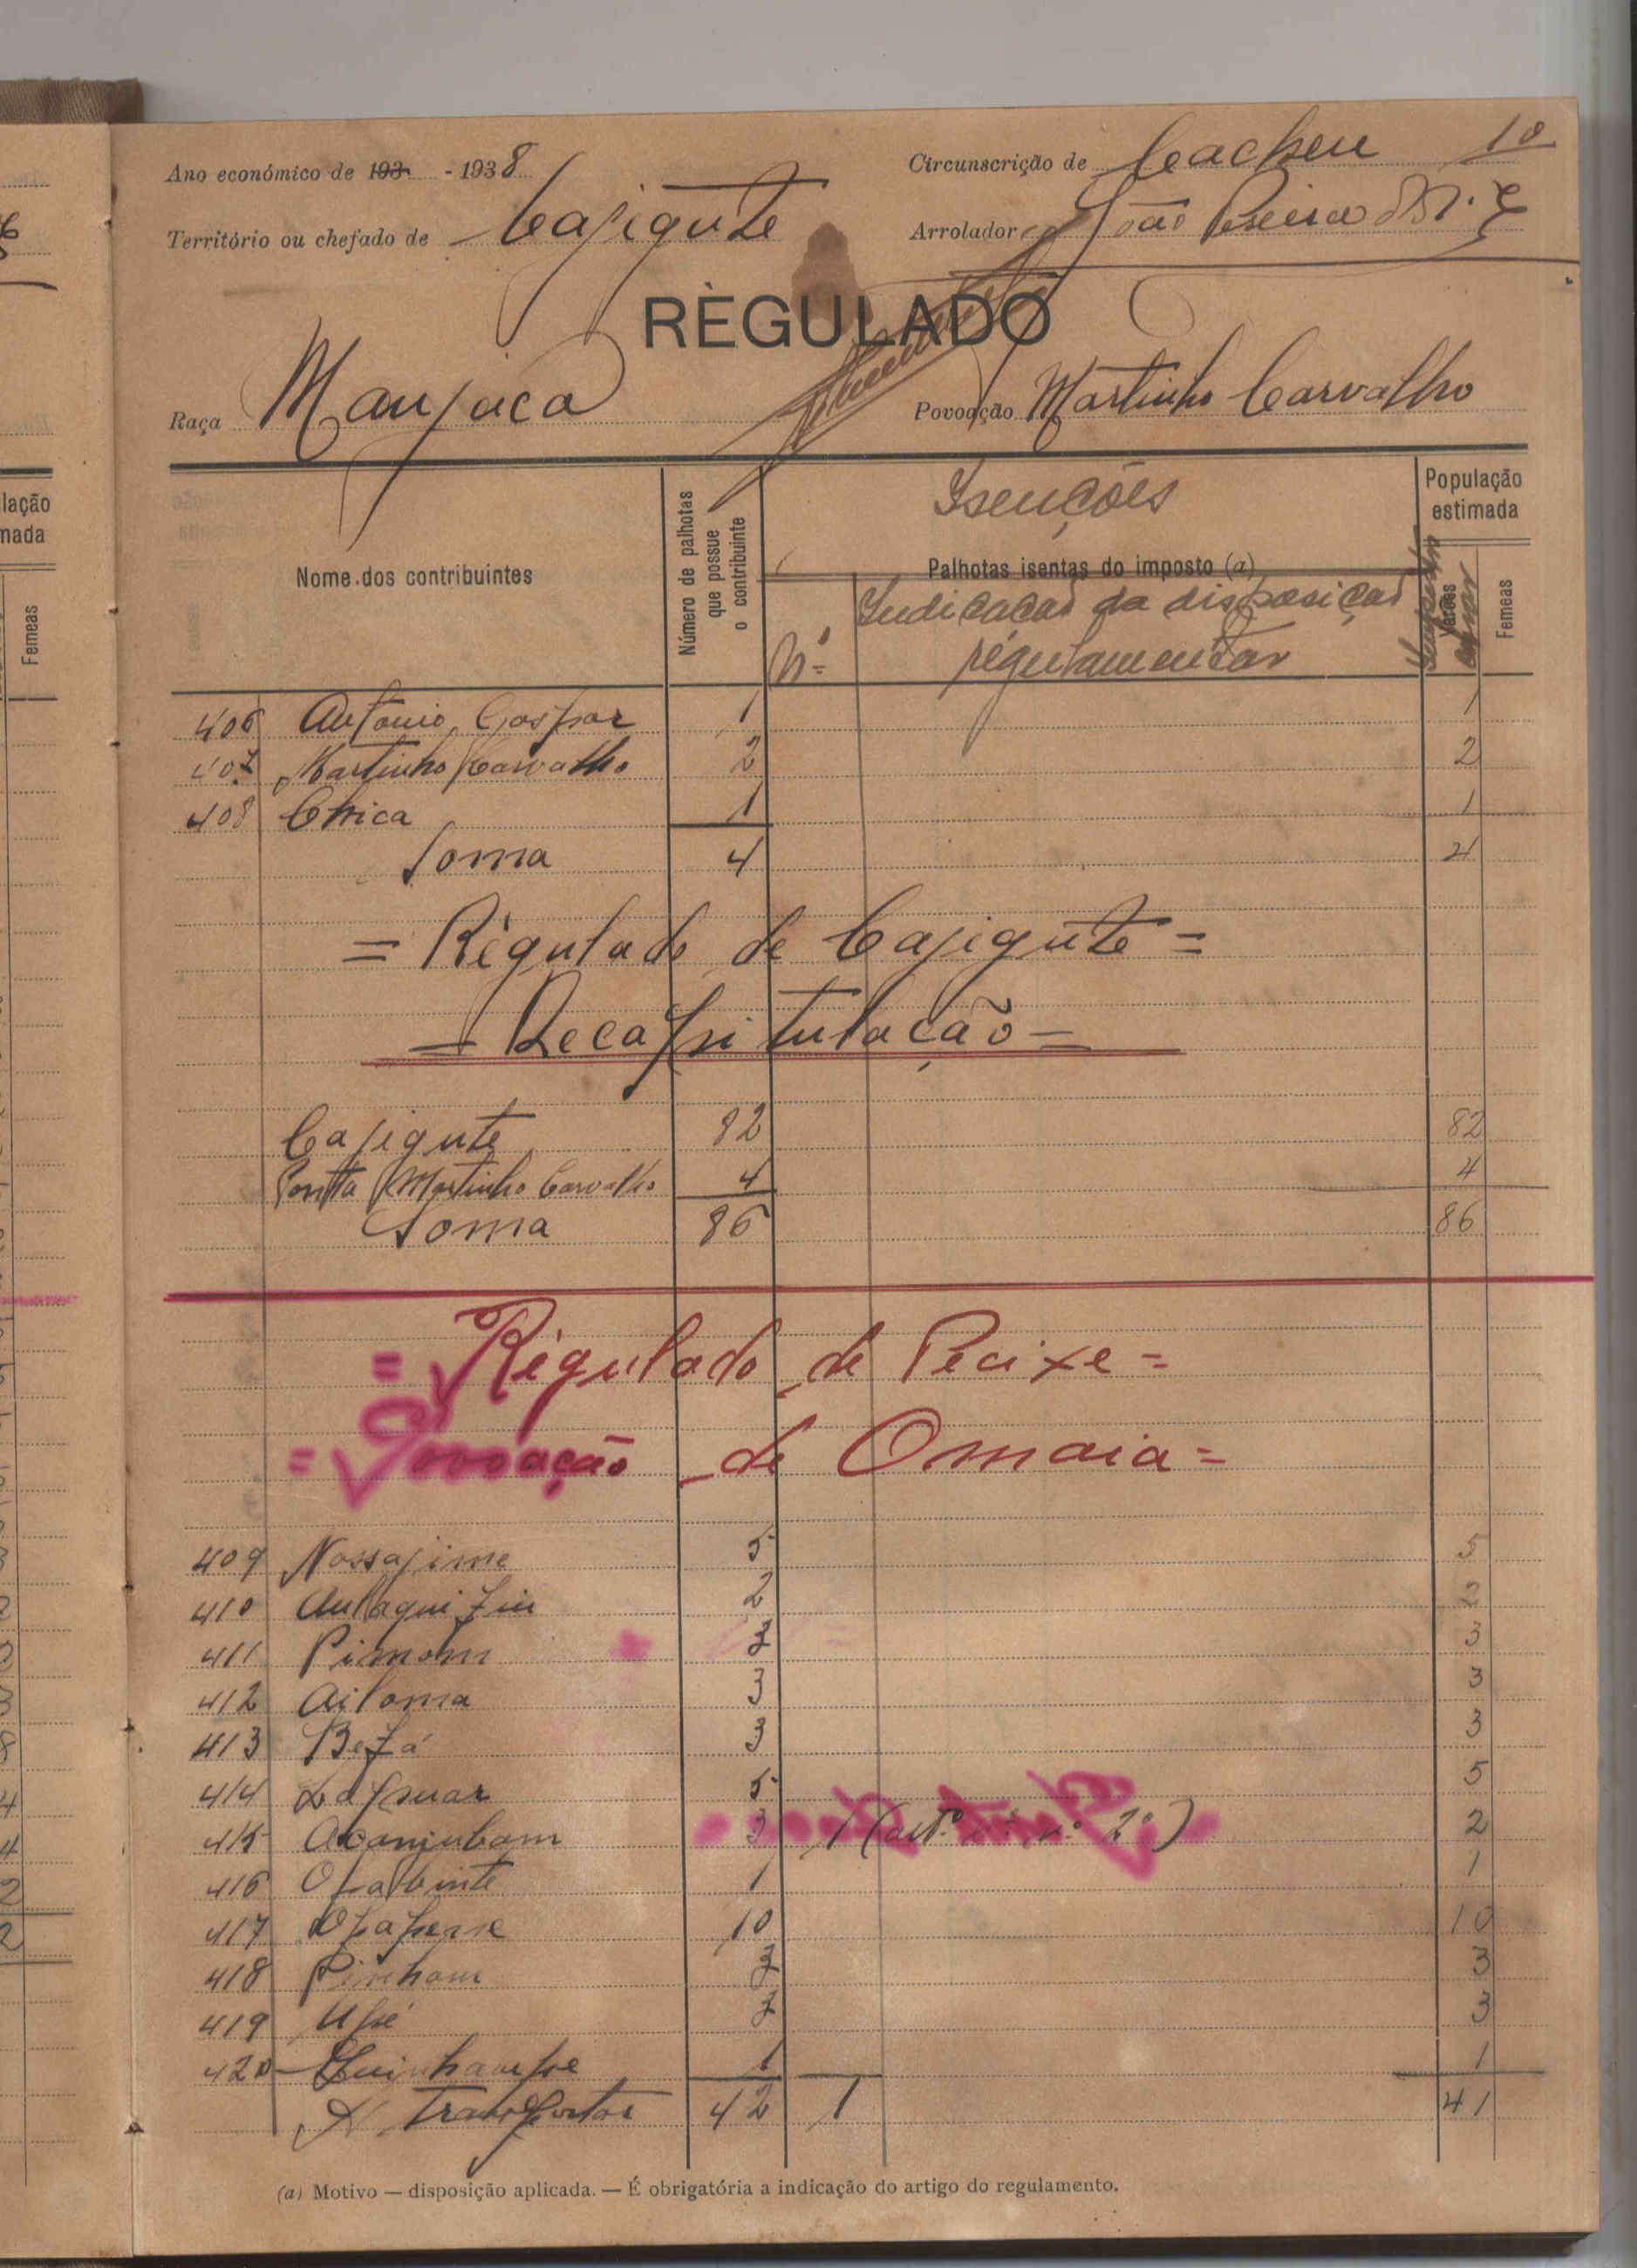 Ano económico de 193 - 1938
Circunscrição de Cacheu 10
Território ou chefado de Cajigute
Arrolador João
RÈGULADO
Raça Manjaca
Povoação Martinho Carvalho
Nome dos contribuintes
Número de palhotas que possue o contribuinte
Isenções
Palhotas isentas do imposto (a)
Nº
Indicação da disposição
regulamentar
População estimada
Varões
Femeas
406 António Gaspar 1 1
407 Martinho Carvalho 2 2
408 Chica 1 1
Soma 4 4
= Règulado de Cajigute =
= Recapitulação =
Cajigute 82 82
Ponta Martinho Carvalho 4 4
Soma 86 86
= Règulado de Pecixe =
= Povoação de Omaia =
409 Nassajime 5 5
410 2 2
411 Pimom 3 3
412 Ailoma 3 3
413 Betá 3 3
414 5 5
415 Acanjubam 3 1 (artº nº 2º) 2
416 1 1
417 10 10
418 Pinham 3 3
419 Upé 3 3
420 Quinhampe 1 1
A Transportar 42 1 41
(a) Motivo — disposição aplicada. — É obrigatória a indicação do artigo do regulamento.
lação
nada
Femeas